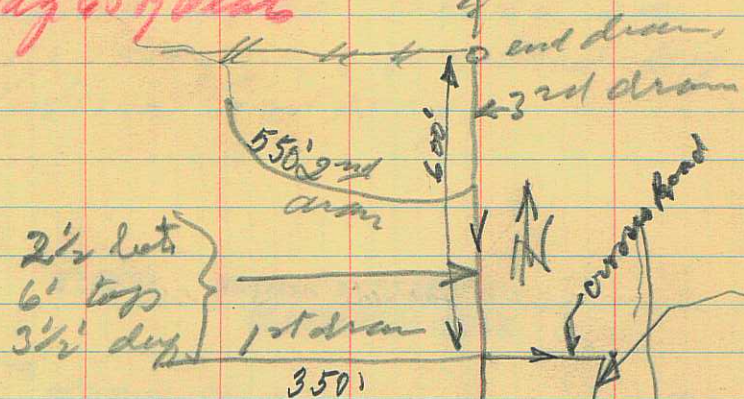 end drain
3rd drain
550' 2nd
drain
600'
N
crosses Road
2½ bott
6' tops
3½' deep
1st drain
350'